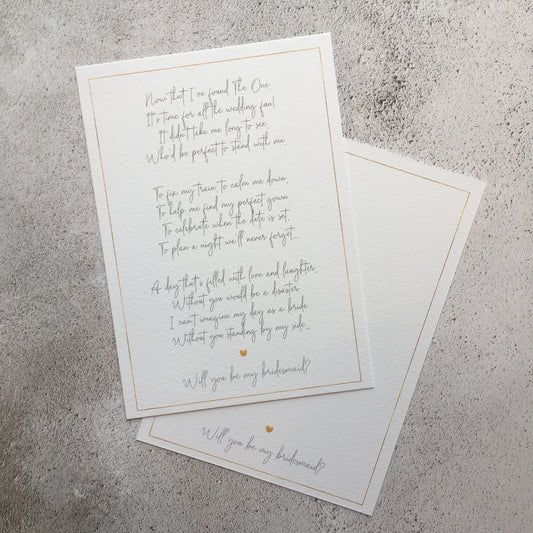 Now that I've found The One,
It's time for all the wedding fun!
It didn't take me long to see,
Who'd be perfect to stand with me.
To fix my train, to calm me down,
To help me find my perfect gown.
To celebrate when the date is set,
To plan a night we'll never forget...
A day that's filled with love and laughter,
Without you would be a disaster.
I can't imagine my day as a bride
Without you standing by my side...
Will you be my bridesmaid?
Will you be my bridesmaid?